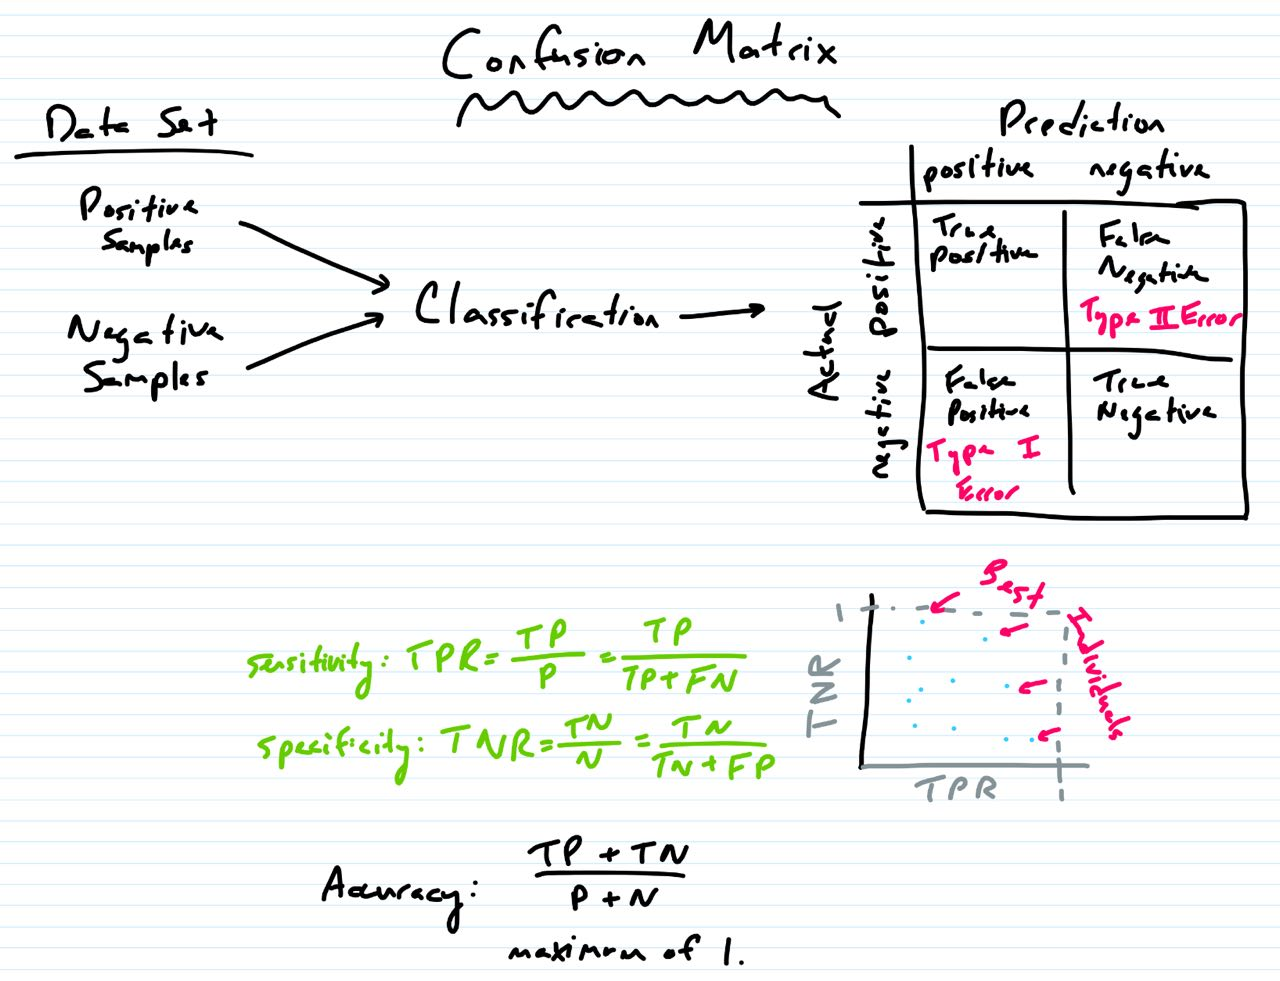 Confusion Matrix
Data Set
Positive
Samples
Negative
Samples
Classification
Prediction
positive negative
Actual
positive
negative
True
positive
False
Negative
Type II Error
False
Positive
Type I
Error
True
Negative
sensitivity: TPR = TP/P = TP/(TP+FN)
specificity: TNR = TN/N = TN/(TN+FP)
Best
Individuals
1
TNR
TPR
1
Accuracy: (TP + TN)/(P + N)
maximum of 1.